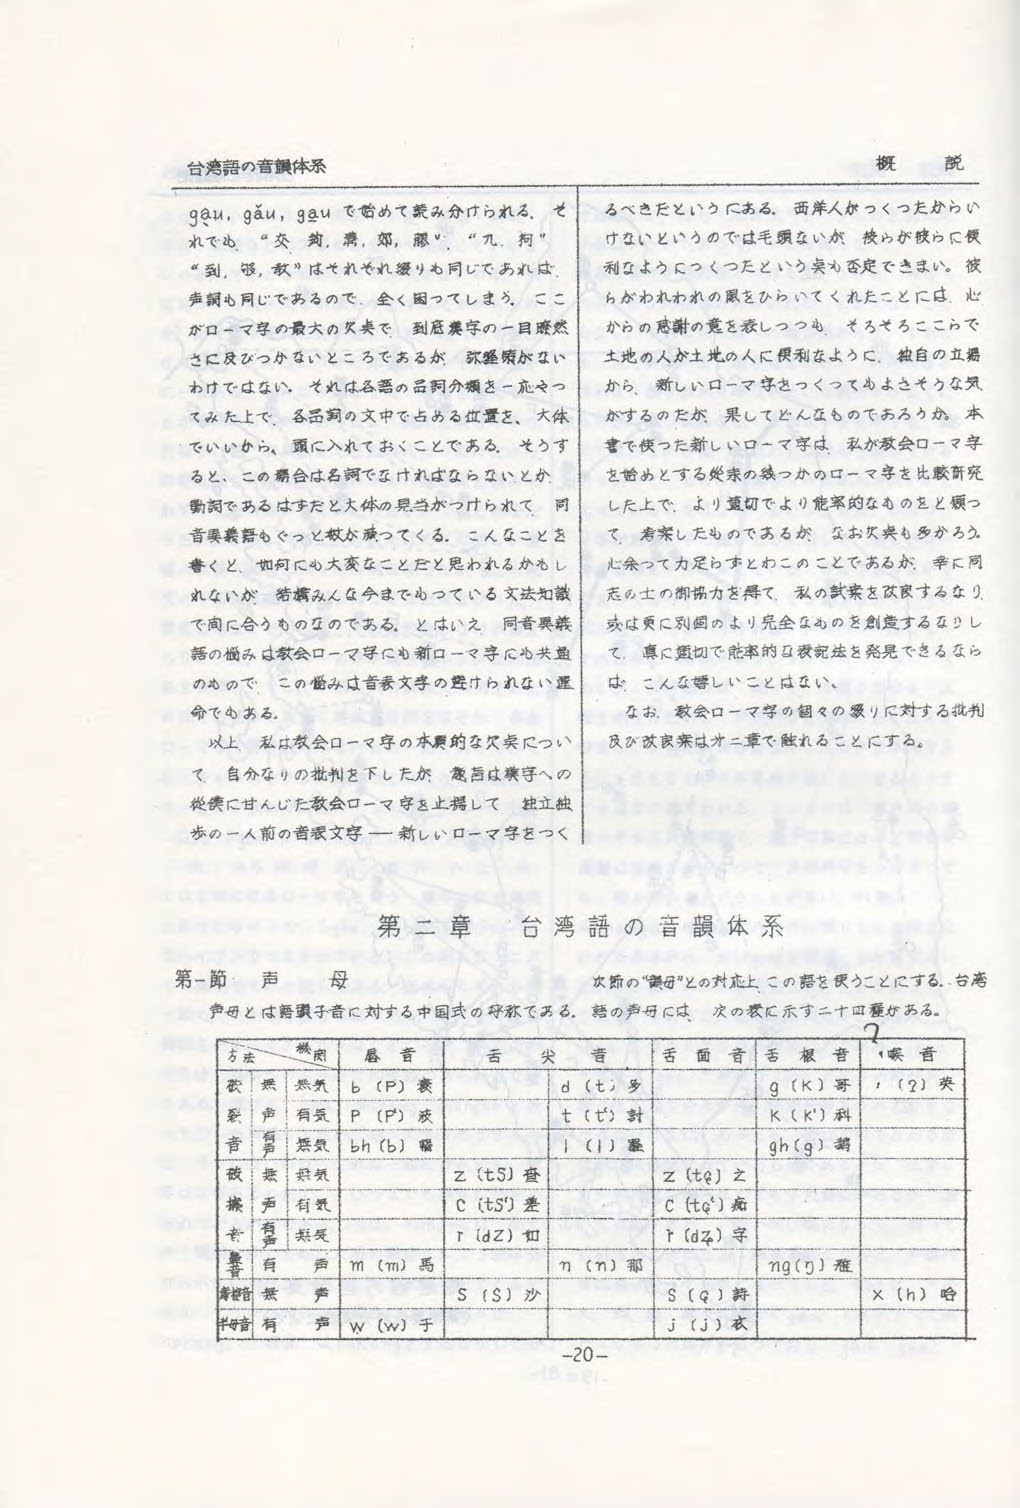 台湾語の音韻体系
概 説
gạu, gǎu, ga̱u で始めて読み分けられる。そ
れでも、“交、鉤、溝、郊、膠”、“九、狗”
“到、够、教”はそれぞれ綴りも同じであれば、
声調も同じであるので、全く困ってしまう。ここ
がローマ字の最大の欠点で、到底漢字の一目瞭然
さに及びつかないところであるが、弥縫策がない
わけではない。それは各語の品詞分類を一応やっ
てみた上で、各品詞の文中で占める位置を、大体
でいいから、頭に入れておくことである。そうす
ると、この場合は名詞でなければならないとか、
動詞であるはずだと大体の見当がつけられて、同
音異義語もぐっと数が減ってくる。こんなことを
書くと、如何にも大変なことだと思われるかもし
れないが、結構みんな今までもっている文法知識
で間に合うものなのである。とはいえ、同音異義
語の悩みは教会ローマ字にも新ローマ字にも共通
のもので、この悩みは音表文字の避けられない運
命でもある。
以上、私は教会ローマ字の本質的な欠点につい
て、自分なりの批判を下したが、趣旨は漢字への
従僕に甘んじた教会ローマ字を止揚して、独立独
歩の一人前の音表文字――新しいローマ字をつく
るべきだというにある。西洋人がつくったからい
けないというのでは毛頭ないが、彼らが彼らに便
利なようにつくったという点も否定できまい。彼
らがわれわれの眼をひらいてくれたことには、心
からの感謝の意を表しつつも、そろそろここらで
土地の人が土地の人に便利なように、独自の立場
から、新しいローマ字をつくってもよさそうな気
がするのだが、果してどんなものであろうか。本
書で使った新しいローマ字は、私が教会ローマ字
を始めとする従来の幾つかのローマ字を比較研究
した上で、より適切でより能率的なものをと願っ
て、考案したものであるが、なお欠点も多かろう。
心余って力足らずとわこのことであるが、幸に同
志の士の御協力を得て、私の試案を改良するなり、
或は更に別個のより完全なものを創造するなりし
て、真に適切で能率的な表記法を発見できるなら
ば、こんな嬉しいことはない。
なお、教会ローマ字の個々の綴りに対する批判
及び改良案は第二章で触れることにする。
第二章 台湾語の音韻体系
第一節 声 母
声母とは語頭子音に対する中国式の呼称である。
次節の“韻母”との対応上、この語を使うことにする。台湾
語の声母には、次の表に示す二十四種がある。
?
方法 機関 唇音 舌尖音 舌面音 舌根音 喉音
破 無 無気 b (p) 褒 d (t) 多 g (k) 哥 ' (ʔ) 英
裂 声 有気 p (p') 波 t (t') 討 k (k') 科
音 有声 無気 bh (b) l (l) gh (g)
破 無 無気 z (ts) 查 z (tɕ) 之
擦 声 有気 c (ts') 差 c (tɕ') 痴
音 有声 無気 r (dz) 如 r (dʑ) 字
鼻音 有 声 m (m) 馬 n (n) 那 ng (ŋ) 雅
摩擦音 無 声 s (s) 沙 s (ɕ) 詩 x (h) 哈
半母音 有 声 w (w) 于 j (j) 衣
-20-